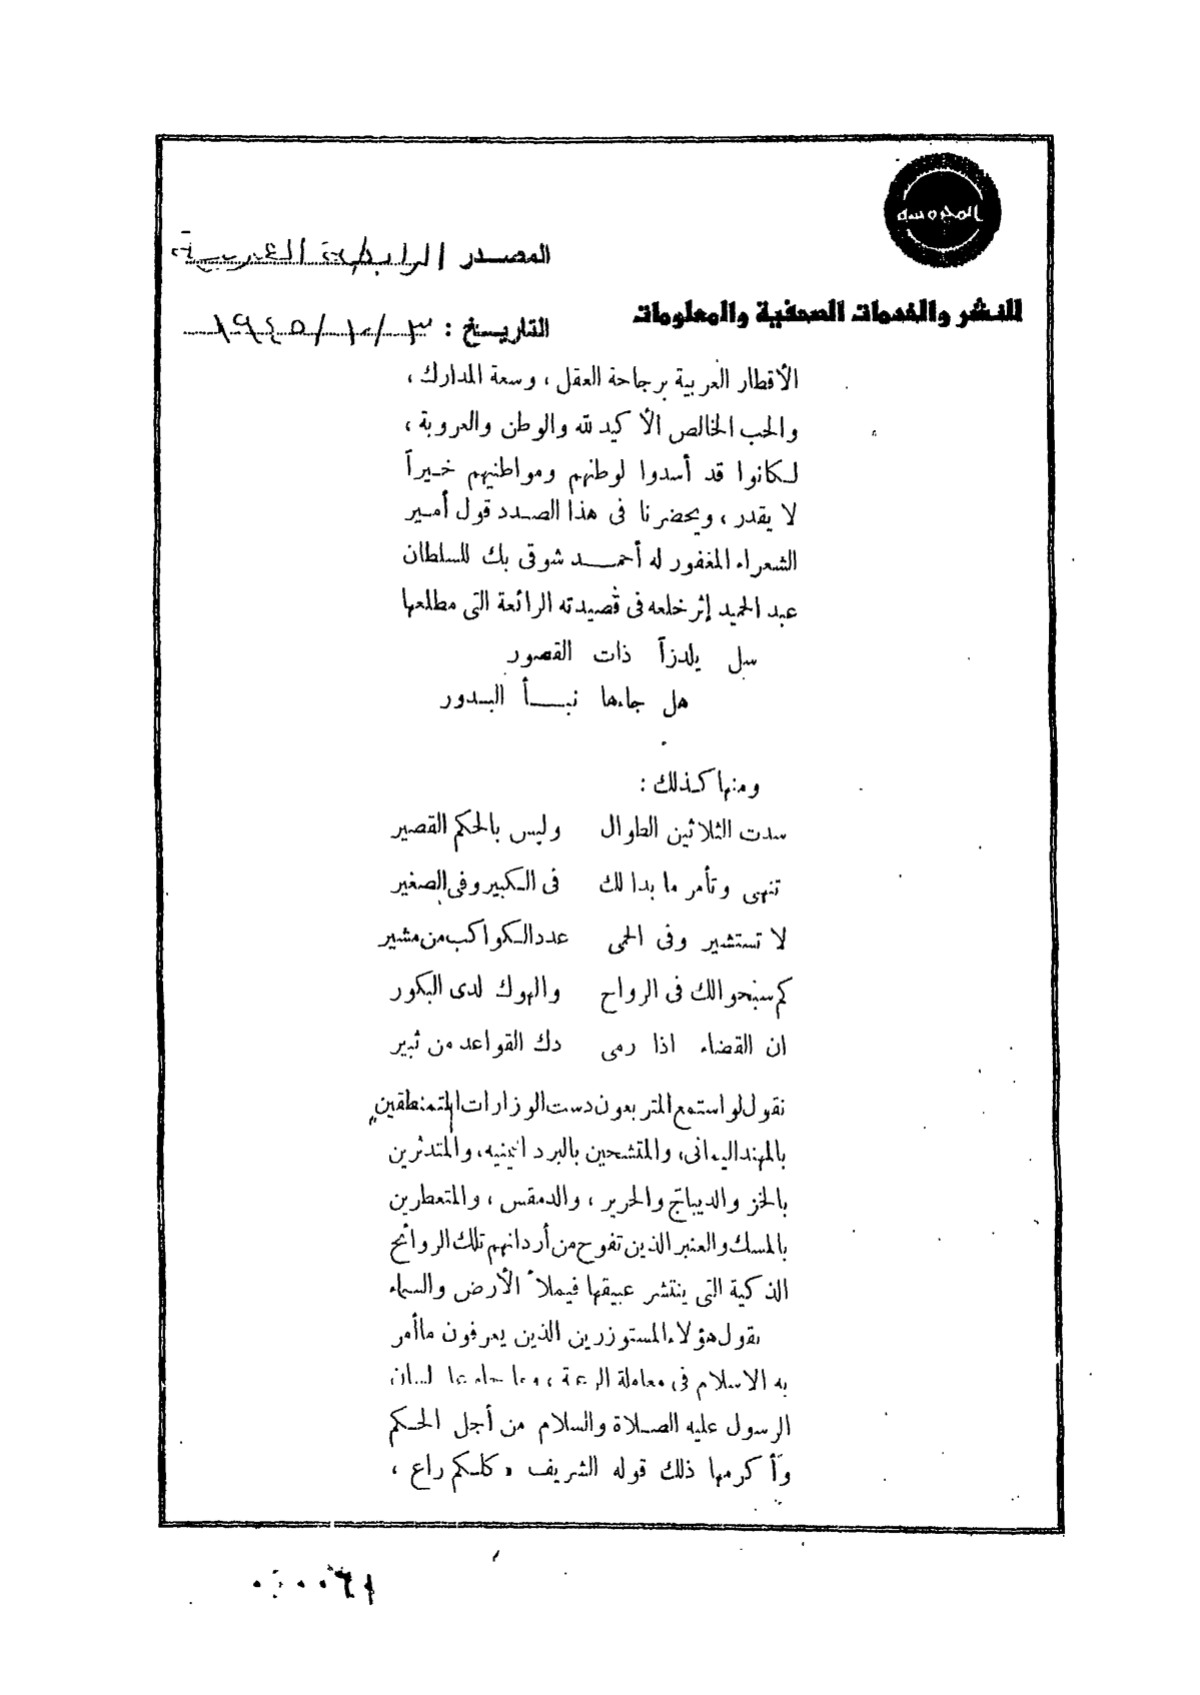 المحروسه
المصدر الرابطة العربية
للنشر والخدمات الصحفية والمعلومات
التاريخ : ٣ / ١٠ / ١٩٤٥
الأقطار العربية برجاحة العقل ، وسعة المدارك ،
والحب الخالص الأكيد لله والوطن والعروبة ،
لكانوا قد أسدوا لوطنهم ومواطنيهم خيراً
لا يقدر ، ويحضرنا فى هذا الصدد قول أمير
الشعراء المغفور له أحمد شوقى بك للسلطان
عبد الحميد إثر خلعه فى قصيدته الرائعة التى مطلعها
سل يلدزاً ذات القصور
هل جاءها نبأ البدور
ومنها كذلك :
سدت الثلاثين الطوال وليس بالحكم القصير
تنهى وتأمر ما بدا لك فى الكبير وفى الصغير
لا تستشير وفى الحمى عدد الكواكب من مشير
كم سبحوا لك فى الرواح والهوك لدى البكور
ان القضاء اذا رمى دك القواعد من ثبير
نقول لو استمع المتربعون دست الوزارات المتمنطقين
بالمهند اليمانى، والمتشحين بالبرد اليمنيه، والمتدثرين
بالخز والديباج والحرير ، والدمقس ، والمتعطرين
بالمسك والعنبر الذين تفوح من أردانهم تلك الروائح
الذكية التى ينتشر عبيقها فيملأ الأرض والسماء
نقول هؤلاء المستوزرين الذين يعرفون ما أمر
به الاسلام فى معاملة الرعية ، وما جاء على لسان
الرسول عليه الصلاة والسلام من أجل الحكم
وأكرمها ذلك قوله الشريف « كلكم راع ،